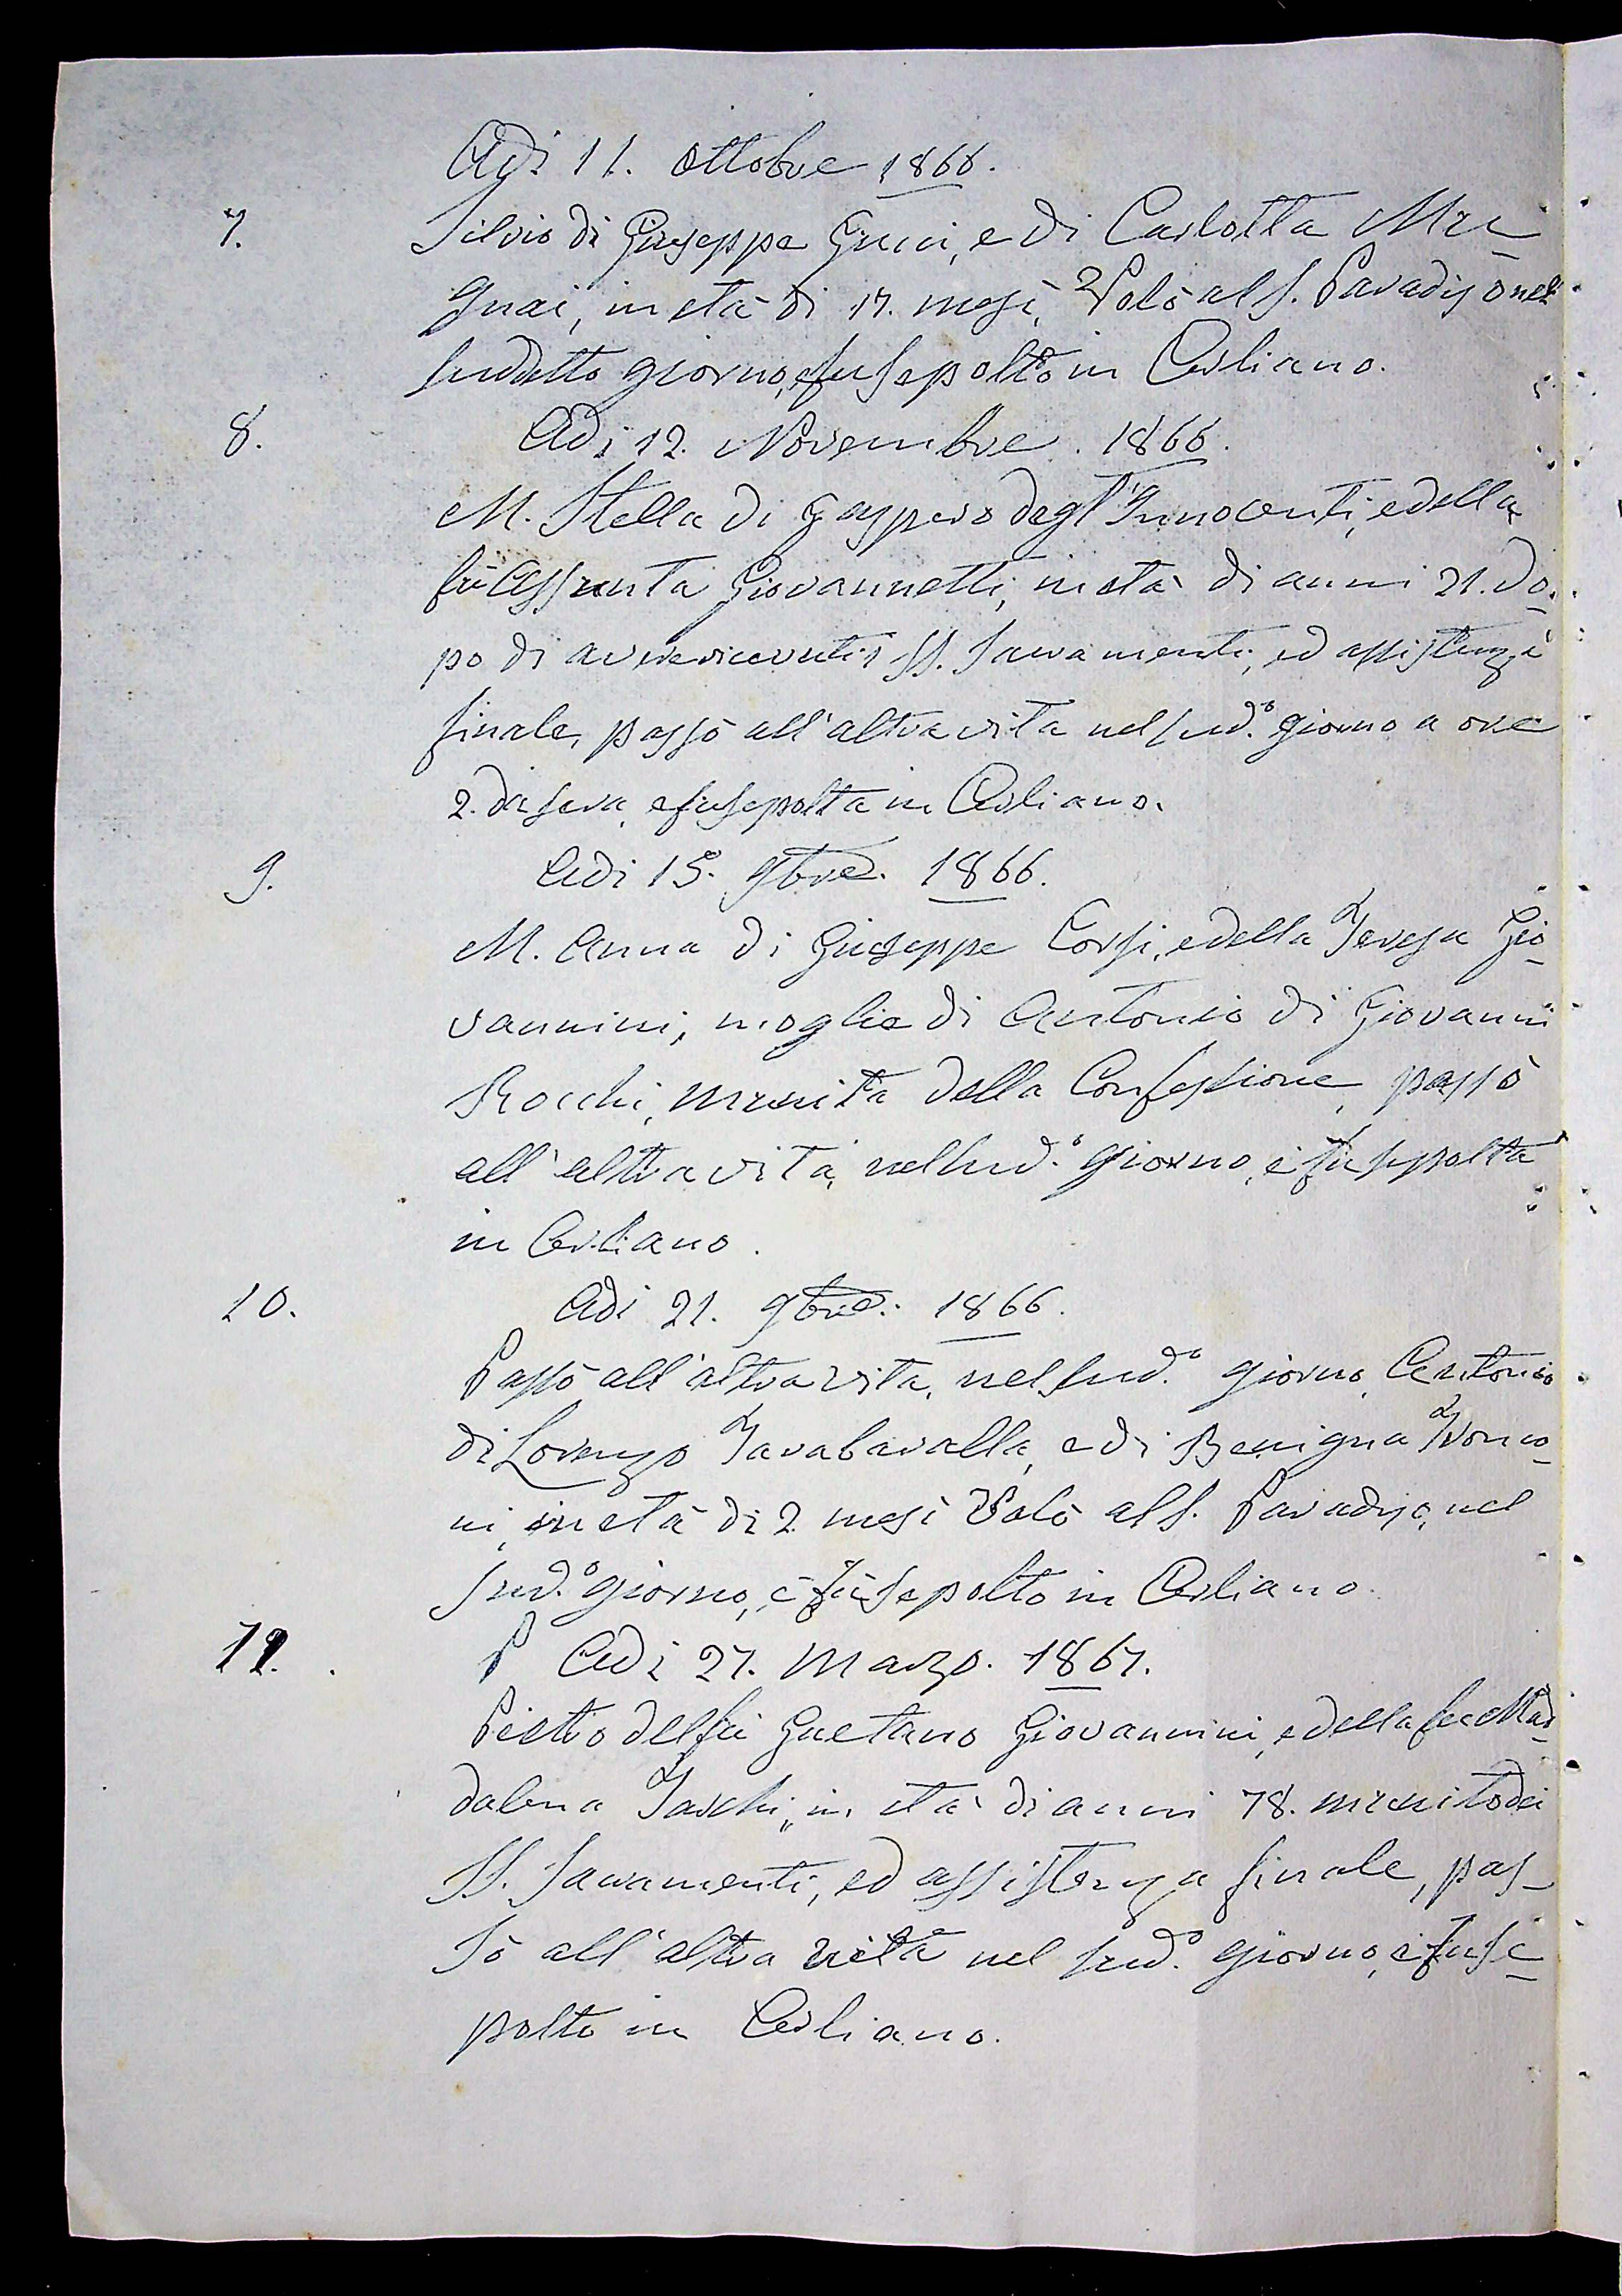 Adi 11. Ottobre 1866.
7. Silvio di Giuseppe Giucci, e di Carlotta Mu-
gnai, in età di 17. mesi, Volò al S. Paradiso nel
suddetto giorno, e fu sepolto in Cerliano.
8. Adi 12. Novembre. 1866.
M. Stella di Gaspero degl'Innocenti, e della
fù Assunta Giovannetti, in età di anni 21. do-
po di avere ricevuti i SS. Sacramenti, ed assistenza
finale, passò all'altra vita nel sud.º giorno a ore
2. di sera, e fu sepolta in Cerliano.
9. Adi 15. 9bre. 1866.
M. Anna di Giuseppe Corsi, e della Teresa Gio-
vannini, moglie di Antonio di Giovanni
Rocchi, munita della Confessione, passò
all'altra vita, nel sud.º giorno, e fu sepolta
in Cerliano.
10. Adi 21. 9bre. 1866.
Passò all'altra vita, nel sud.º giorno Antonio
di Lorenzo Tarabaralla, e di Benigna Tronco-
ni, in età di 2 mesi Volò al S. Paradiso, nel
sud.º giorno, e fù sepolto in Cerliano.
11. P Adi 27. Marzo. 1867.
Pietro del fù Gaetano Giovannini, e della fu Mad-
dalena Taschi, in età di anni 78. munito dei
SS. Sacramenti, ed assistenza finale, pas-
sò all'altra vita nel sud.º giorno, e fu se-
polto in Cerliano.